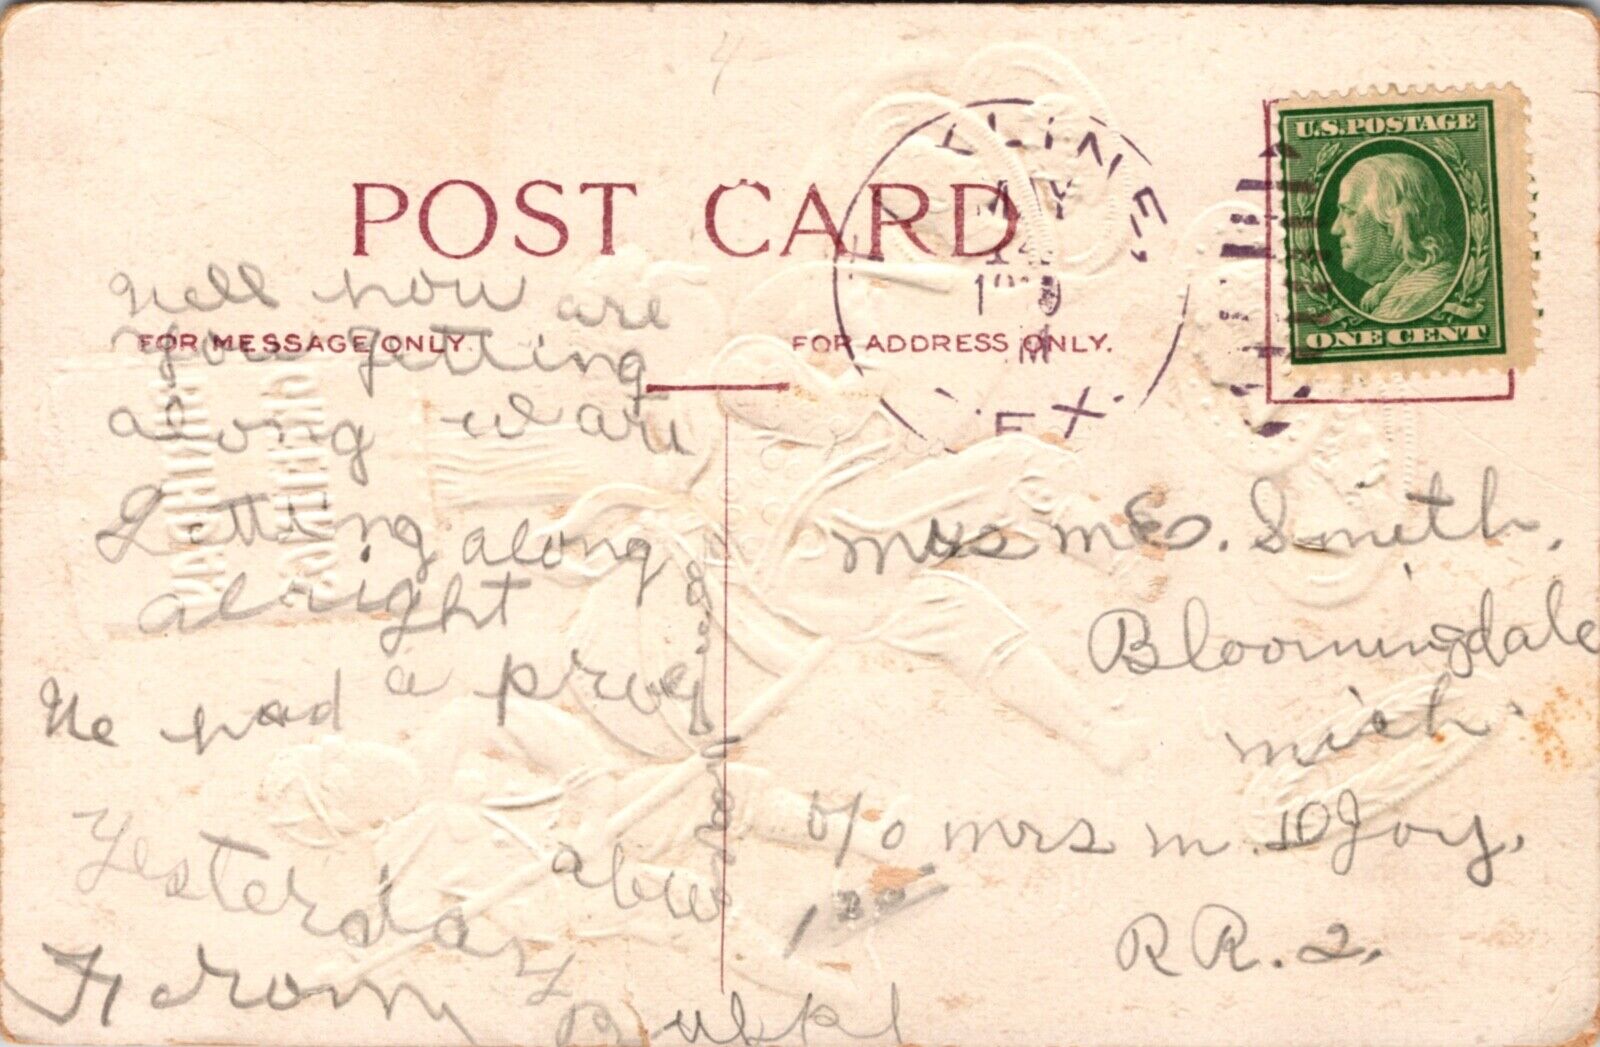 POST CARD
FOR MESSAGE ONLY.
FOR ADDRESS ONLY.
U.S. POSTAGE
ONE CENT
MAY
14
1910
M
TEX.
Well how are
you Getting
along we are
Getting along
alright
We had a
Yesterday
From
Mrs M E. Smith,
Bloomingdale
Mich.
c/o Mrs M. D Joy,
R R. 2.